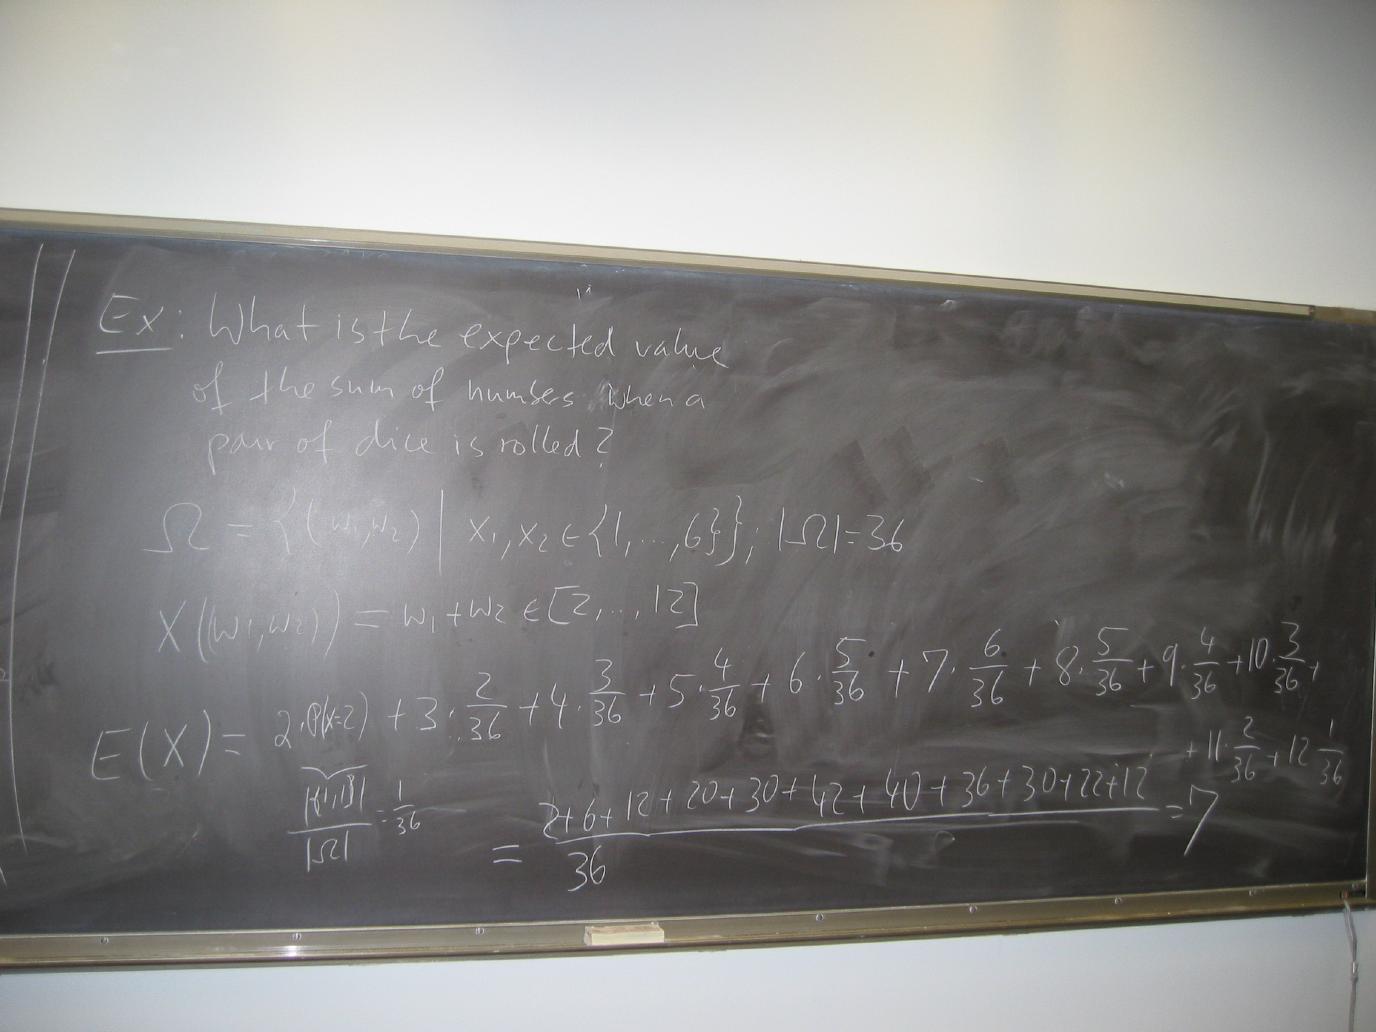 Ex: What is the expected value
of the sum of numbers when a
pair of dice is rolled?
Ω = {(w₁,w₂) | x₁,x₂ ∈ {1,...,6}}; |Ω|=36
X((w₁,w₂)) = w₁+w₂ ∈ [2,..,12]
E(X) = 2·P(X=2) + 3·2/36 + 4·3/36 + 5·4/36 + 6·5/36 + 7·6/36 + 8·5/36 + 9·4/36 + 10·3/36 +
+ 11·2/36 + 12 1/36
|{(1,1)}|/|Ω| = 1/36
= (2+6+12+20+30+42+40+36+30+22+12)/36 = 7